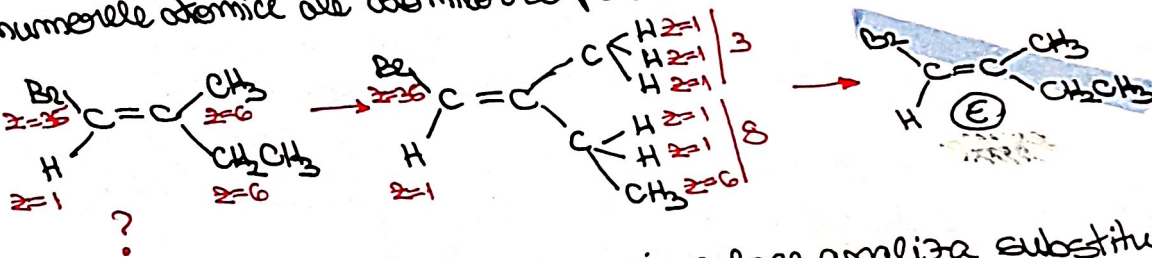 numerele atomice ale
Br C = C CH₃ z=35 z=6 H CH₂CH₃ z=1 z=6 ?
Br z=35 C = C H z=1 C H z=1 H z=1 H z=1 3 C H z=1 H z=1 CH₃ z=6 8
Br C = C CH₃ H CH₂CH₃ E
analiza substitu